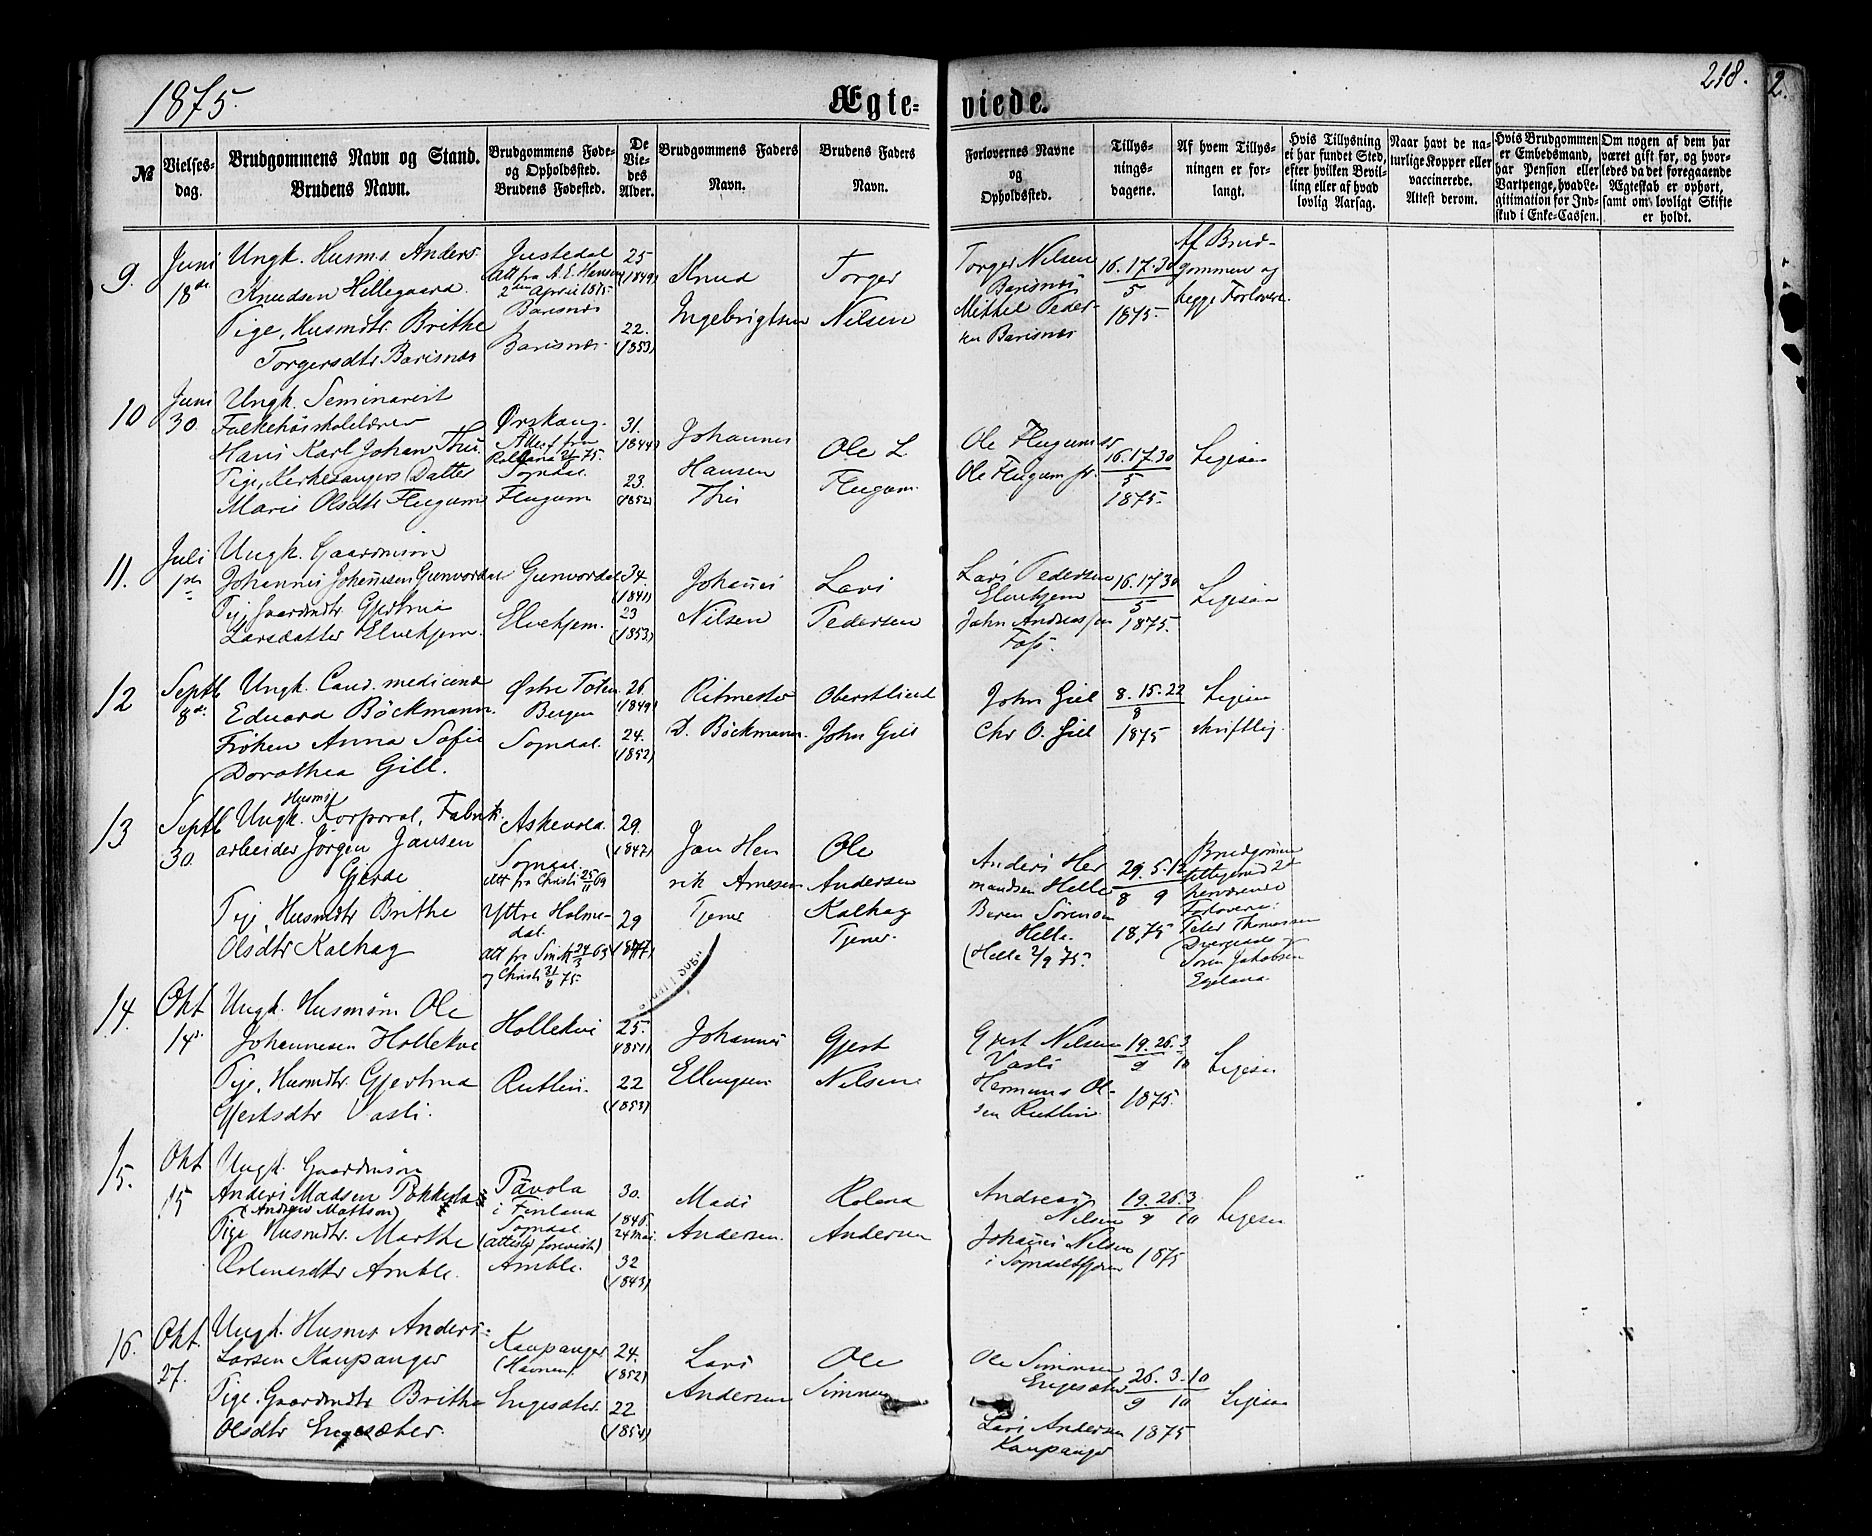 1875.
Ægte-
viede.
218.
2.
№
Vielses-
dag.
Brudgommens Navn og Stand.
Brudens Navn.
Brudgommens Føde-
og Opholdssted.
Brudens Fødested.
De
Vie-
des
Alder.
Brudgommens Faders
Navn.
Brudens Faders
Navn.
Forlovernes Navne
og
Opholdssted.
Tillys-
nings-
dagene.
Af hvem Tillys-
ningen er for-
langt.
Hvis Tillysning
ei har fundet Sted,
efter hvilken Bevil-
ling eller af hvad
lovlig Aarsag.
Naar havt de na-
turlige Kopper eller
vaccinerede.
Attest derom.
Hvis Brudgommen
er Embedsmand,
har Pension eller
Vartpenge, hvad Le-
gitimation for Ind-
skud i Enke-Cassen.
Om nogen af dem har
været gift før, og hvor-
ledes da det foregaaende
Ægteskab er ophørt,
samt om lovligt Skifte
er holdt.
9.
Juni
18de
Ungk. Husms. Anders
Knudsen Hillegaard.
Pige, Husmdtr. Brithe
Torgersdtr Barisnæs
Justedal
Att fra A. E. Hansen
2den April 1875
Barisnæs
Barisnæs
25
(1849)
22.
(1853)
Knud
Ingebrigtsen
Torger
Nilsen
Torger Nilsen
Barisnæs
Mikkel Peder-
sen Barisnæs
16. 17. 30
5
1875.
Af Brud-
gommen og
begge Forlovere.
10
Juni
30.
Ungk. Seminarist
Folkehøiskolelærer
Hans Karl Johan Thiis
Pige, Kirkesangers Datter
Marie Olsdtr Flugum
Ørskoug.
Attest fra
Sogndal
Flugum
31.
(1844)
23.
(1852)
Johannes
Hansen
Thiis
Ole L
Flugum.
Ole Flugum sr
Ole Flugum jr.
16. 17. 30
5
1875.
Ligesaa
11.
Juli
1ste
Ungk. Gaardmsøn
Johannes Johannesen Gunvordal
Pig. Gaardmdtr Gjertrud
Larsdatter Elvekjem.
Gunvordal
Elvekjem.
34.
(1841)
23
(1853)
Johannes
Nilsen
Lars
Pedersen
Lars Pedersen
Elvekjem
John Andreassen
Foss.
16. 17. 30
5
1875.
Ligesaa
12
Septb
8de
Ungk. Cand. medicinæ
Eduard Böckmann.
Frøken Anna Sofie
Dorothea Gill.
Østre Toten
Bergen
Sogndal.
26.
(1849)
24.
(1852)
Ritmester
D. Böckmann.
Oberstlieut
John Gill
John Giel
Chr O. Giel
8. 15. 22
8
1875
Ligesaa
skriftlig.
13
Septb
30.
Husms
Ungk. Korporal, Fabrik-
arbeider Jørgen Jansen
Gjerde
Pige, Husmdtr Brithe
Olsdtr Kalhag
Askevold.
Sogndal
Att fra Christi 25/11 69
Yttre Holme-
dal.
Att fra 24/3 69
og Christi 31/8 75.
29.
(1847)
29
(1847)
Jan Hen
rik Arnesen
Tjener
Ole
Andersen
Kalhag
Tjener.
Anders Her
mandsen Helle
Beren Sørensen
Helle.
(Helle 2/9 75.
29. 5. 12
8 9
1875
Brudgommen
tilligemed 2de
herværende
Forlovere:
Peter Thomassen
Søren Jakobsen
14.
Okt
14de
Ungk. Husmsøn Ole
Johannesen Hollekve
Pige, Husmdtr. Gjertrud
Gjertsdtr Vasli.
Hollekve
Rutlin.
25.
(1851)
22
(1853)
Johannes
Ellingsen
Gjert
Nilsen
Gjert Nilsen
Vasli
Hermund Ol-
sen Rutlin
19. 26. 3
9 10
1875.
Ligesaa
15.
Okt
15
Ungk. Gaardmsøn
Anders Madsen Pokkela
(Anders Mattson)
Pige Husmdtr. Marthe
Rolandsdtr Amble.
Pavola
i Finland
Sogndal
(Attest forevist)
Amble.
30.
1846.
24 Mai.
32
(1843)
Mads
Andersen.
Roland
Andersen
Andreas
Nilsen
Johannes Nilsen
i Sogndalsfjøren
19. 26. 3
9 10
1875
Ligesaa
16.
Okt.
27.
Ungk. Husms Anders
Larsen Kaupanger
Pige. Gaardmdtr Britha
Olsdtr Engesæter.
Kaupanger
(Havnen).
Engesæter.
24.
(1852)
22
(1854)
Lars
Andersen
Ole
Simonsen
Ole Simonsen
Engesæter
Lars Andersen
Kaupanger
26. 3. 10
9 10
1875
Ligesaa